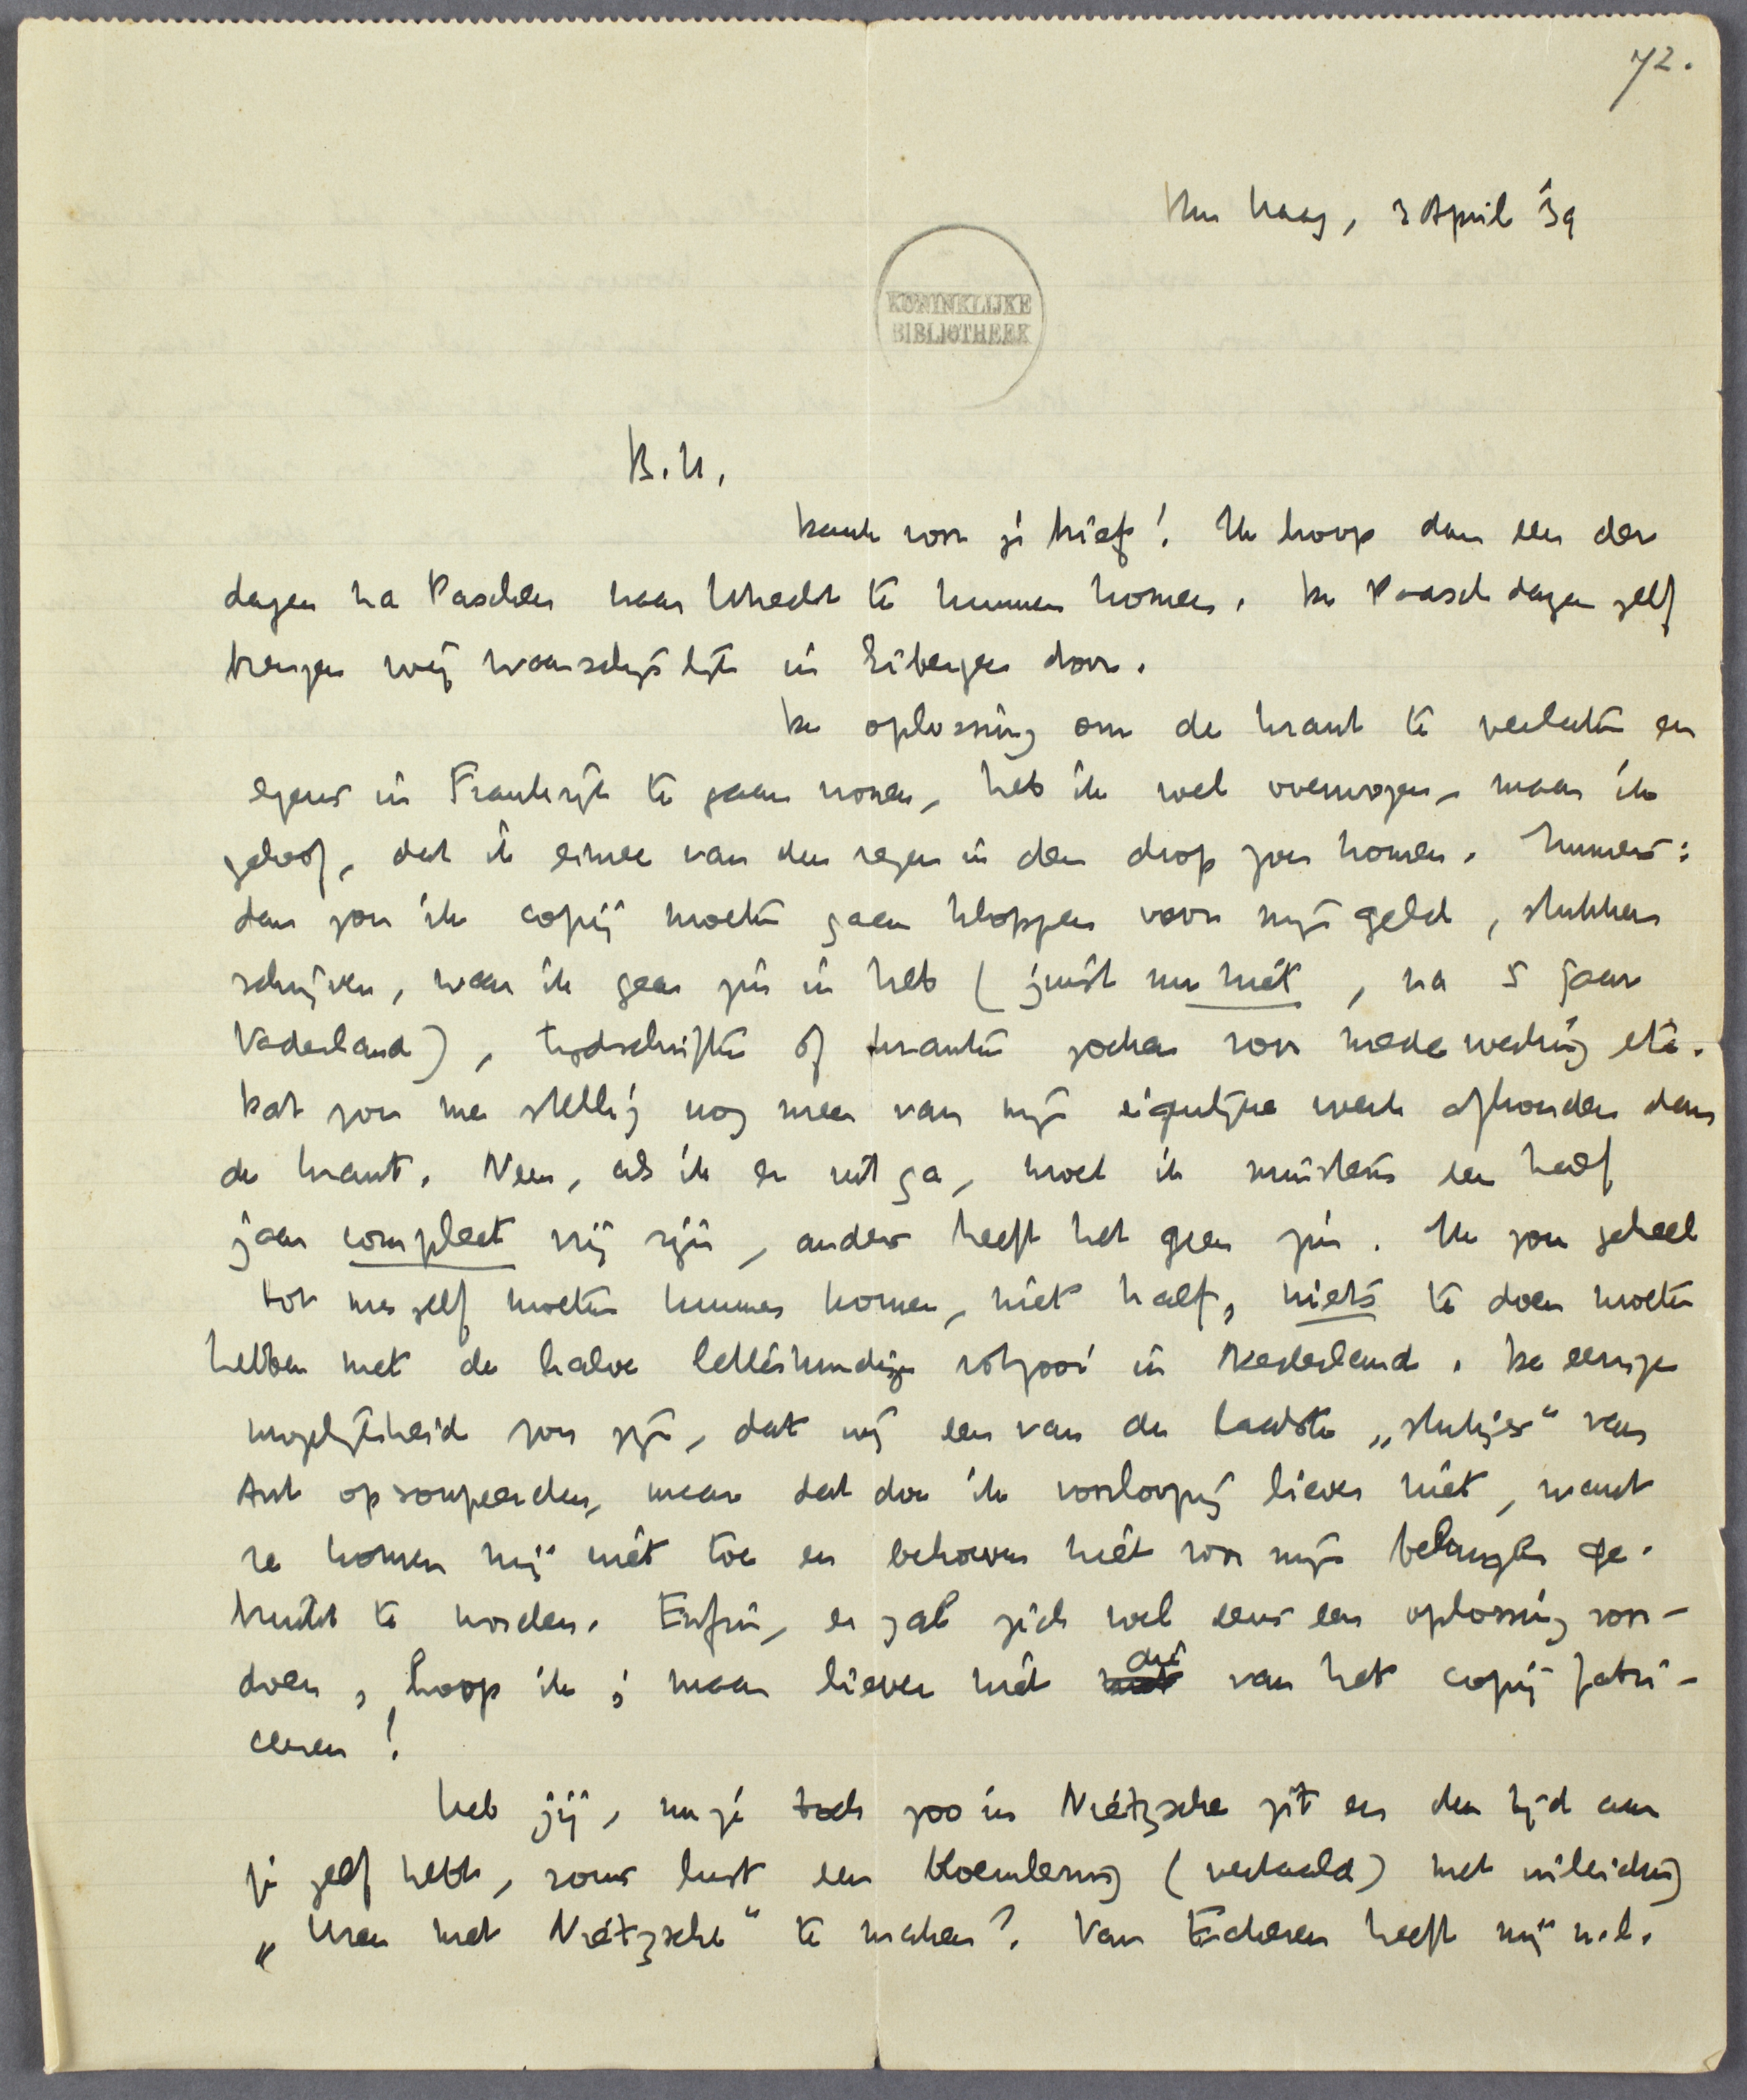 72.
Den Haag, 3 April '39
KONINKLIJKE
BIBLIOTHEEK
B.H.,
Dank voor je brief! Ik hoop dan een der
dagen na Paschen naar Utrecht te kunnen komen. De Paaschdagen zelf
brengen wij waarschijnlijk in Eibergen door.
De oplossing om de krant te verlaten en
ergens in Frankrijk te gaan wonen, heb ik wel overwogen, maar ik
geloof, dat ik ermee van den regen in den drop zou komen. Immers:
dan zou ik copij moeten gaan kloppen voor mijn geld, stukken
schrijven, waar ik geen zin in heb (juist nu niet, na 5 jaar
Vaderland), tijdschriften of kranten zoeken voor medewerking etc.
Dat zou me stellig nog meer van mijn eigenlijke werk afhouden dan
de krant. Neen, als ik er uit ga, moet ik minstens een half
jaar compleet vrij zijn, anders heeft het geen zin. Ik zou geheel
tot mezelf moeten kunnen komen, niet half, niets te doen moeten
hebben met de halve letterkundige rotzooi in Nederland. De eenige
mogelijkheid zou zijn, dat wij een van de laatste „stukjes" van
Ant opsoupeerden, maar dat doe ik voorloopig liever niet, want
ze komen mij niet toe en behoeven niet voor mijn belangen ge-
bruikt te worden. Enfin, er zal zich wel eens een oplossing voor-
doen, hoop ik; maar liever niet die van het copij fabri-
ceeren!
Heb jij, nu je toch zoo in Nietzsche zit en den tijd aan
je zelf hebt, soms lust een bloemlezing (vertaald) met inleiding
„Uren met Nietzsche" te maken? Van Eckeren heeft mij n.l.